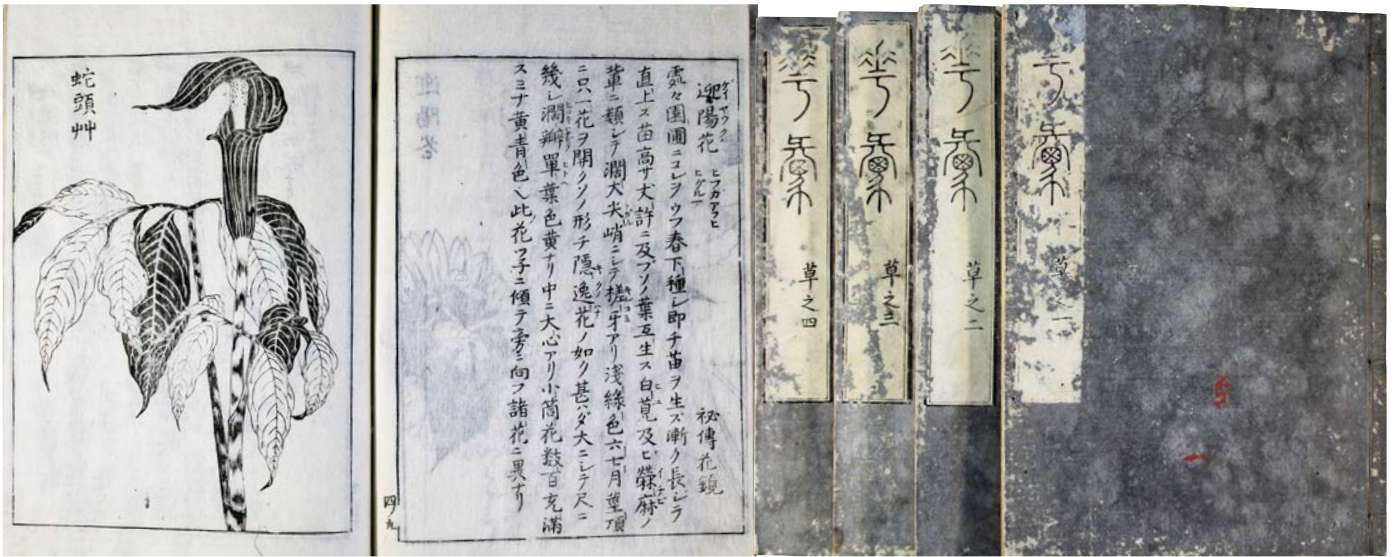 蛇頭艸
迎陽花 祕傳花鏡
處々園圃ニコレヲウフ春下種シ即チ苗ヲ生ズ漸ク長シテ
直上ス苗高サ丈許ニ及ブソノ葉互生ス白莧及ヒ䔛麻ノ
葉ニ類シテ濶大尖峭ニシテ槎牙アリ淺綠色六七月莖頂
ニ只一花ヲ開クソノ形チ隱逸花ノ如ク甚ハダ大ニシテ尺ニ
幾シ濶瓣單葉色黄ナリ中ニ大心アリ小筒花数百充滿
スミナ黄青色乀此花ツ子ニ傾テ旁ニ向フ諸花ニ異ナリ
四ノ九
華彙 草之四
華彙 草之三
華彙 草之二
彙 草 一